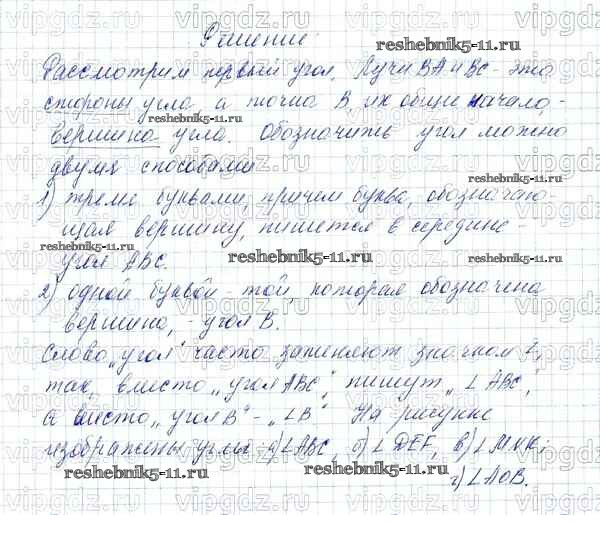 Решение
Рассмотрим первый угол. Лучи BA и BC - это
стороны угла а точка B, их общие начало, -
вершина угла. Обозначить угол можно
двумя способами
1) тремя буквами, причем буква, обозначаю-
щая вершину, пишется в середине -
угол ABC.
2) одной буквой - той, которая обозначена
вершина, - угол B.
Слово „угол“ часто заменяют значком ∠,
так, вместо „угол ABC“ пишут „∠ABC“,
а вместо „угол B“ - „∠B“ На рисунке
изображены углы: а) ∠ABC, б) ∠DEF, в) ∠MNK;
г) ∠AOB.
reshebnik5-11.ru
reshebnik5-11.ru
reshebnik5-11.ru
reshebnik5-11.ru
reshebnik5-11.ru
reshebnik5-11.ru
reshebnik5-11.ru
reshebnik5-11.ru
vipgdz.ru